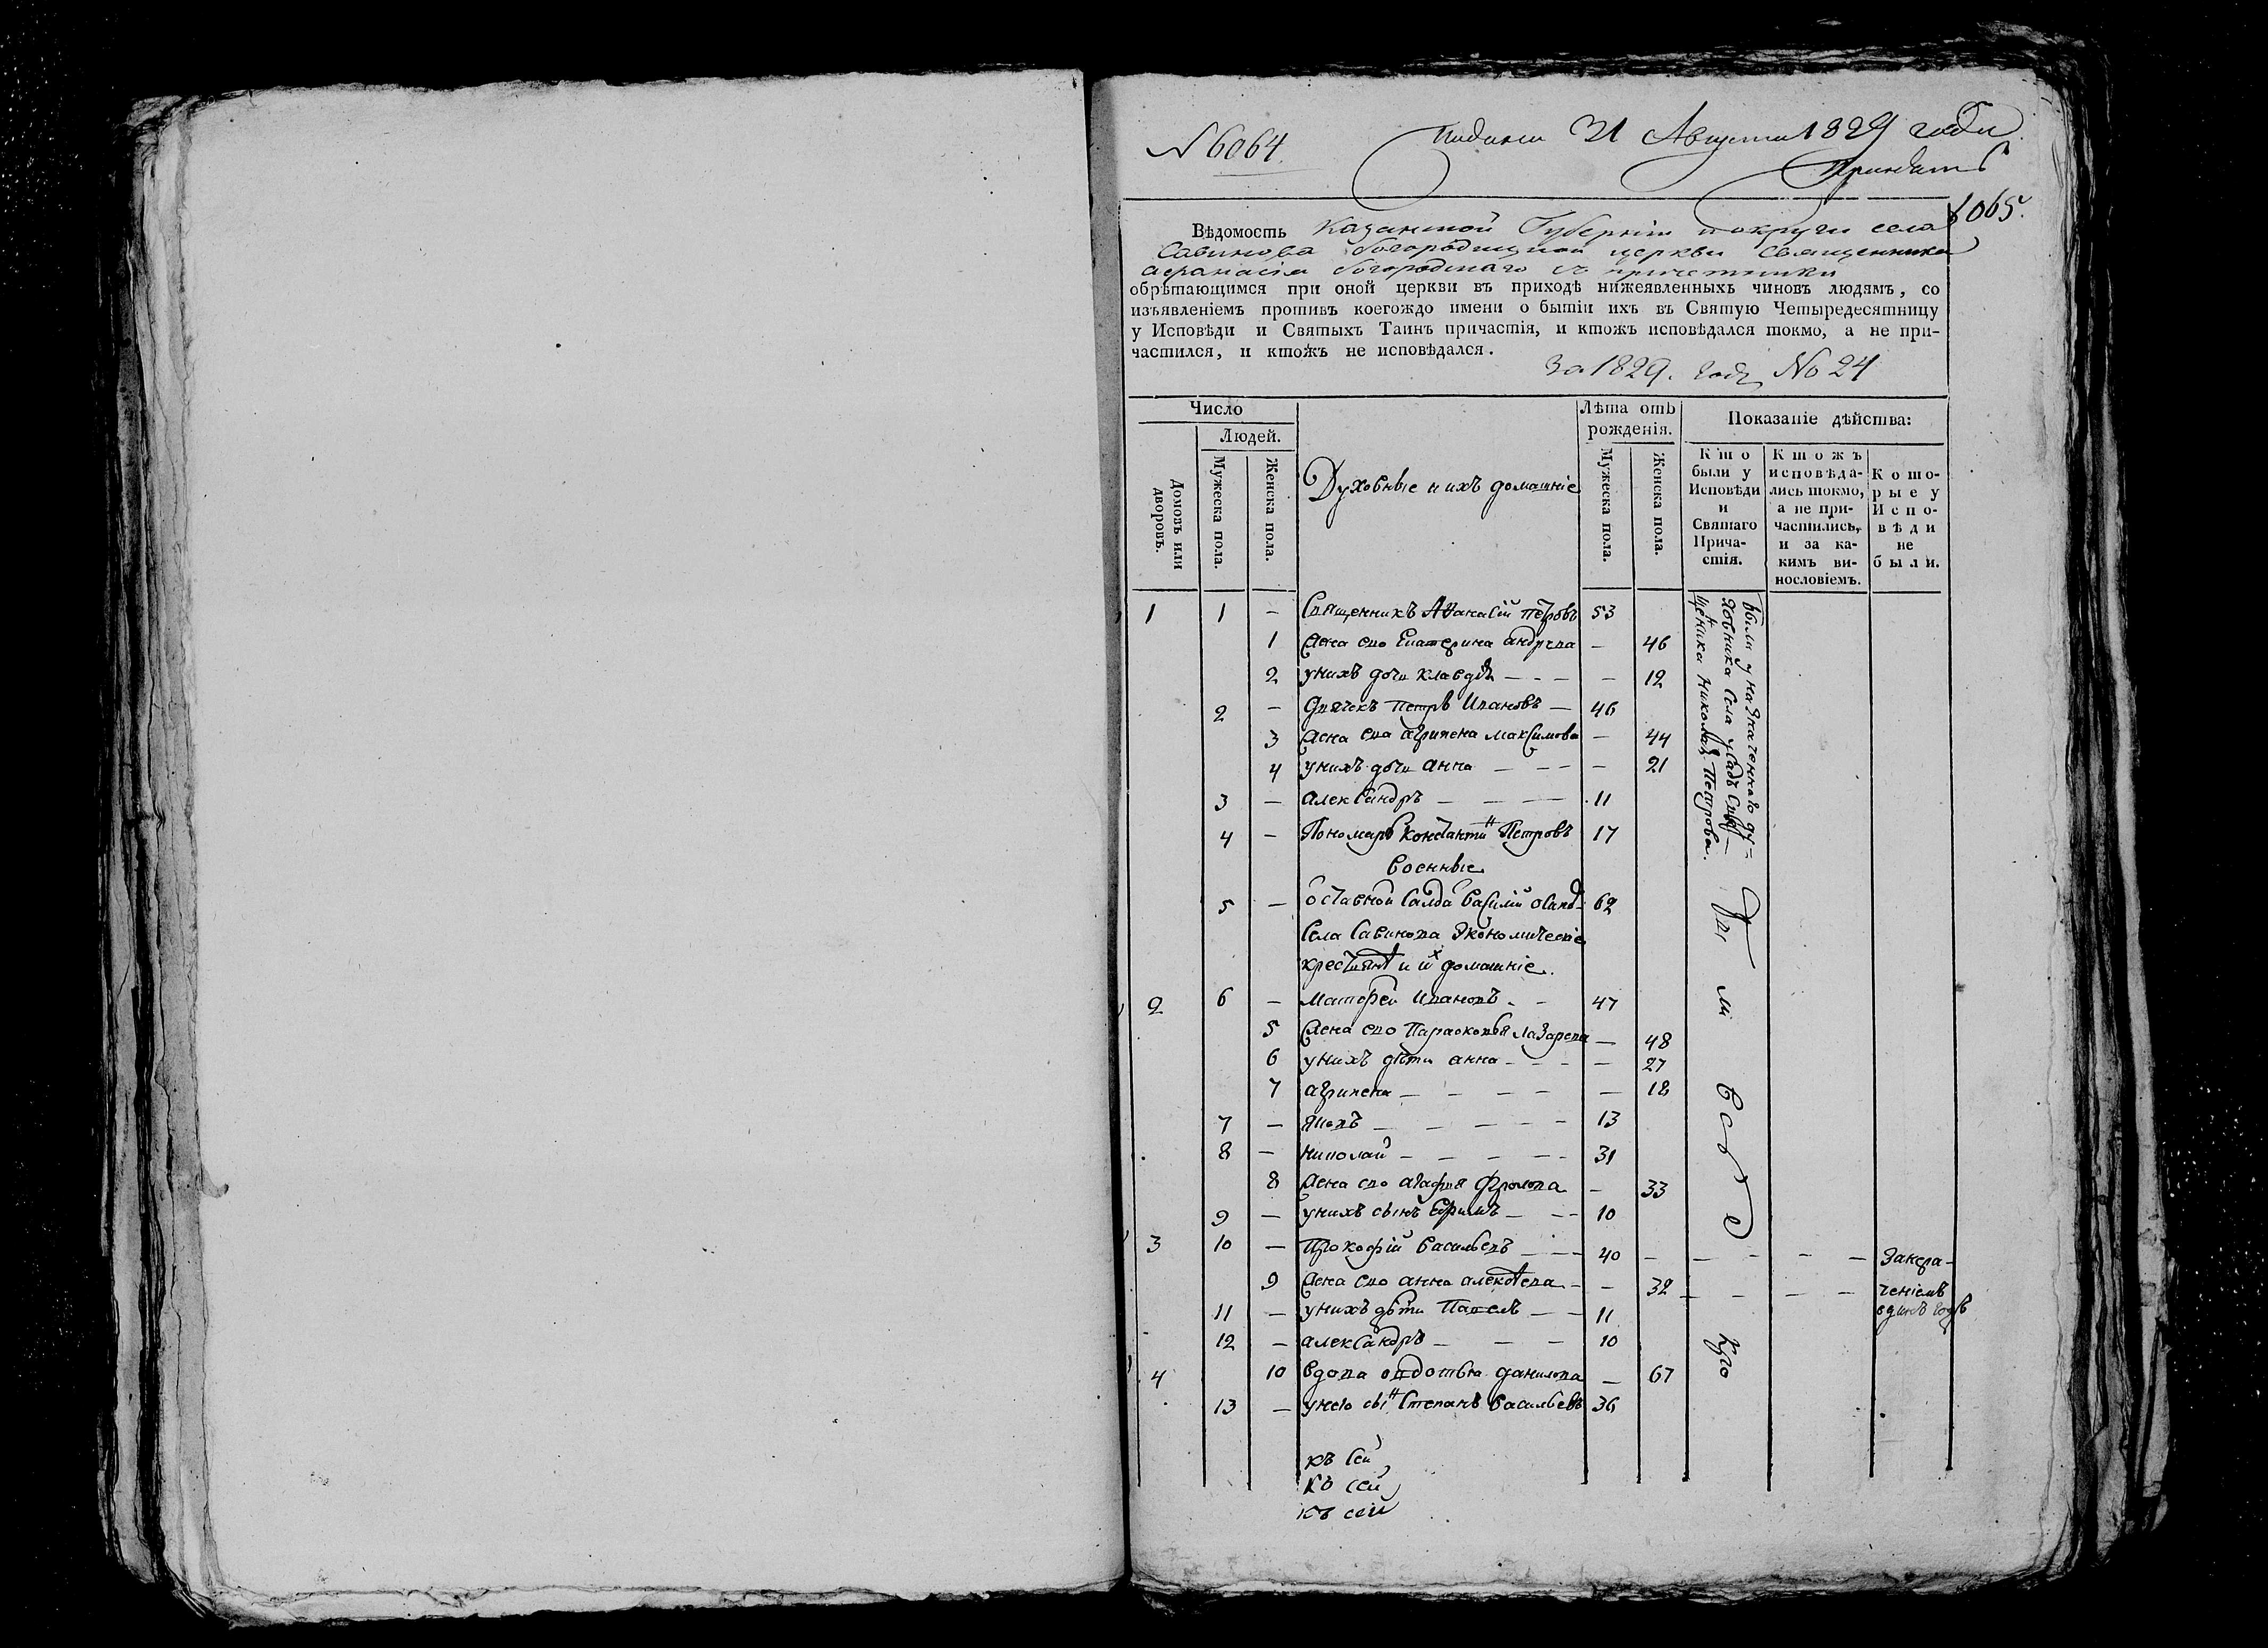 № 6064
Подана 31 Августа 1829 года
1065.
Вѣдомость Казанской Губерніи и округи села
Савинова богородицкой церкви священника
афанасія богородскаго съ причетники
обрѣтающимся при оной церкви въ приходѣ нижеявленныхъ чиновъ людямъ, со
изъявленіемъ противъ коегождо имени о бытіи ихъ въ Святую Четыредесятницу
у Исповѣди и Святыхъ Таинъ причастія, и ктожъ исповѣдался токмо, а не при-
частился, и ктожъ не исповѣдался.
За 1829. годъ № 24
Число
Людей.
Домовъ или дворовъ.
Мужеска пола.
Женска пола.
Духовные и ихъ домашніе
Лѣта отъ
рожденія.
Мужеска пола.
Женска пола.
Показаніе дѣйства:
Кто
были у
Исповѣди
и
Святаго
Прича-
стія.
Ктожъ
исповѣда-
лись токмо,
а не при-
частились,
и за ка-
кимъ ви-
нословіемъ.
Кото-
рые у
Испо-
вѣди
не
были.
1 1 – Священникъ Аѳанасій Петровъ 53
1 Жена ево Екатерина андреева – 46
2 у нихъ дочь клавдія – – – – 12
2 – Дьячекъ Петръ Ивановъ – 46
3 Жена ева агрипена максимова – 44
4 у нихъ дочь анна – – – – 21
3 – александръ – – – 11
4 – Пономарь Константинъ Петровъ 17
военные
5 – оставной салдатъ василій 62
Села Савинова Экономическіе
крестьяне и ихъ домашніе.
2 6 – Матфей Ивановъ – – 47
5 Жена ево Парасковья лазарева – 48
6 у нихъ дѣти анна – – – – 27
7 агрипена – – – – – 18
7 – яковъ – – – – – 13
8 – николай – – – – – 31
8 Жена ево агафья фролова – 33
9 – у нихъ сынъ Ефимъ – – – 10
3 10 – Прокофій васильевъ – – – 40 – – – – – Занера-
9 Жена ево анна алексѣева – – 32 – – – – – ченіемъ
11 – у нихъ дѣти Павелъ – – 11 одинъ годъ
12 – александръ – – – 10
4 10 вдова овдотья данилова – 67
13 – у нею сынъ Степанъ васильевъ 36
были у назначеннаго ду=
ховника села
щенника николая Петрова.
всѣ
къ сей
къ сей
къ сей